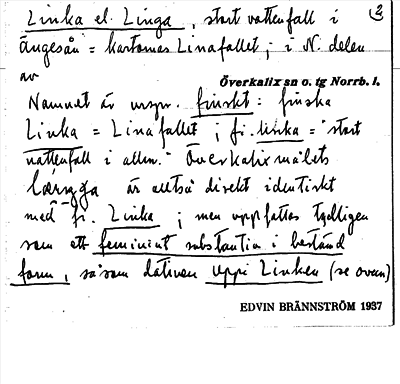 Linka el. Linga, stort vattenfall i ②
Ängesån = kartornas Linafallet; i N. delen
av Överkalix sn o. tg Norrb. l.
Namnet är urspr. finskt: finska
Linka = Linafallet; fi. linka = "stort
vattenfall i allm." Överkalixmålets
är alltså direkt identiskt
med fi. Linka; men uppfattas tydligen
som ett feminint substantiv i bestämd
form, såsom dativen uppi Linken (se ovan)
EDVIN BRÄNNSTRÖM 1937